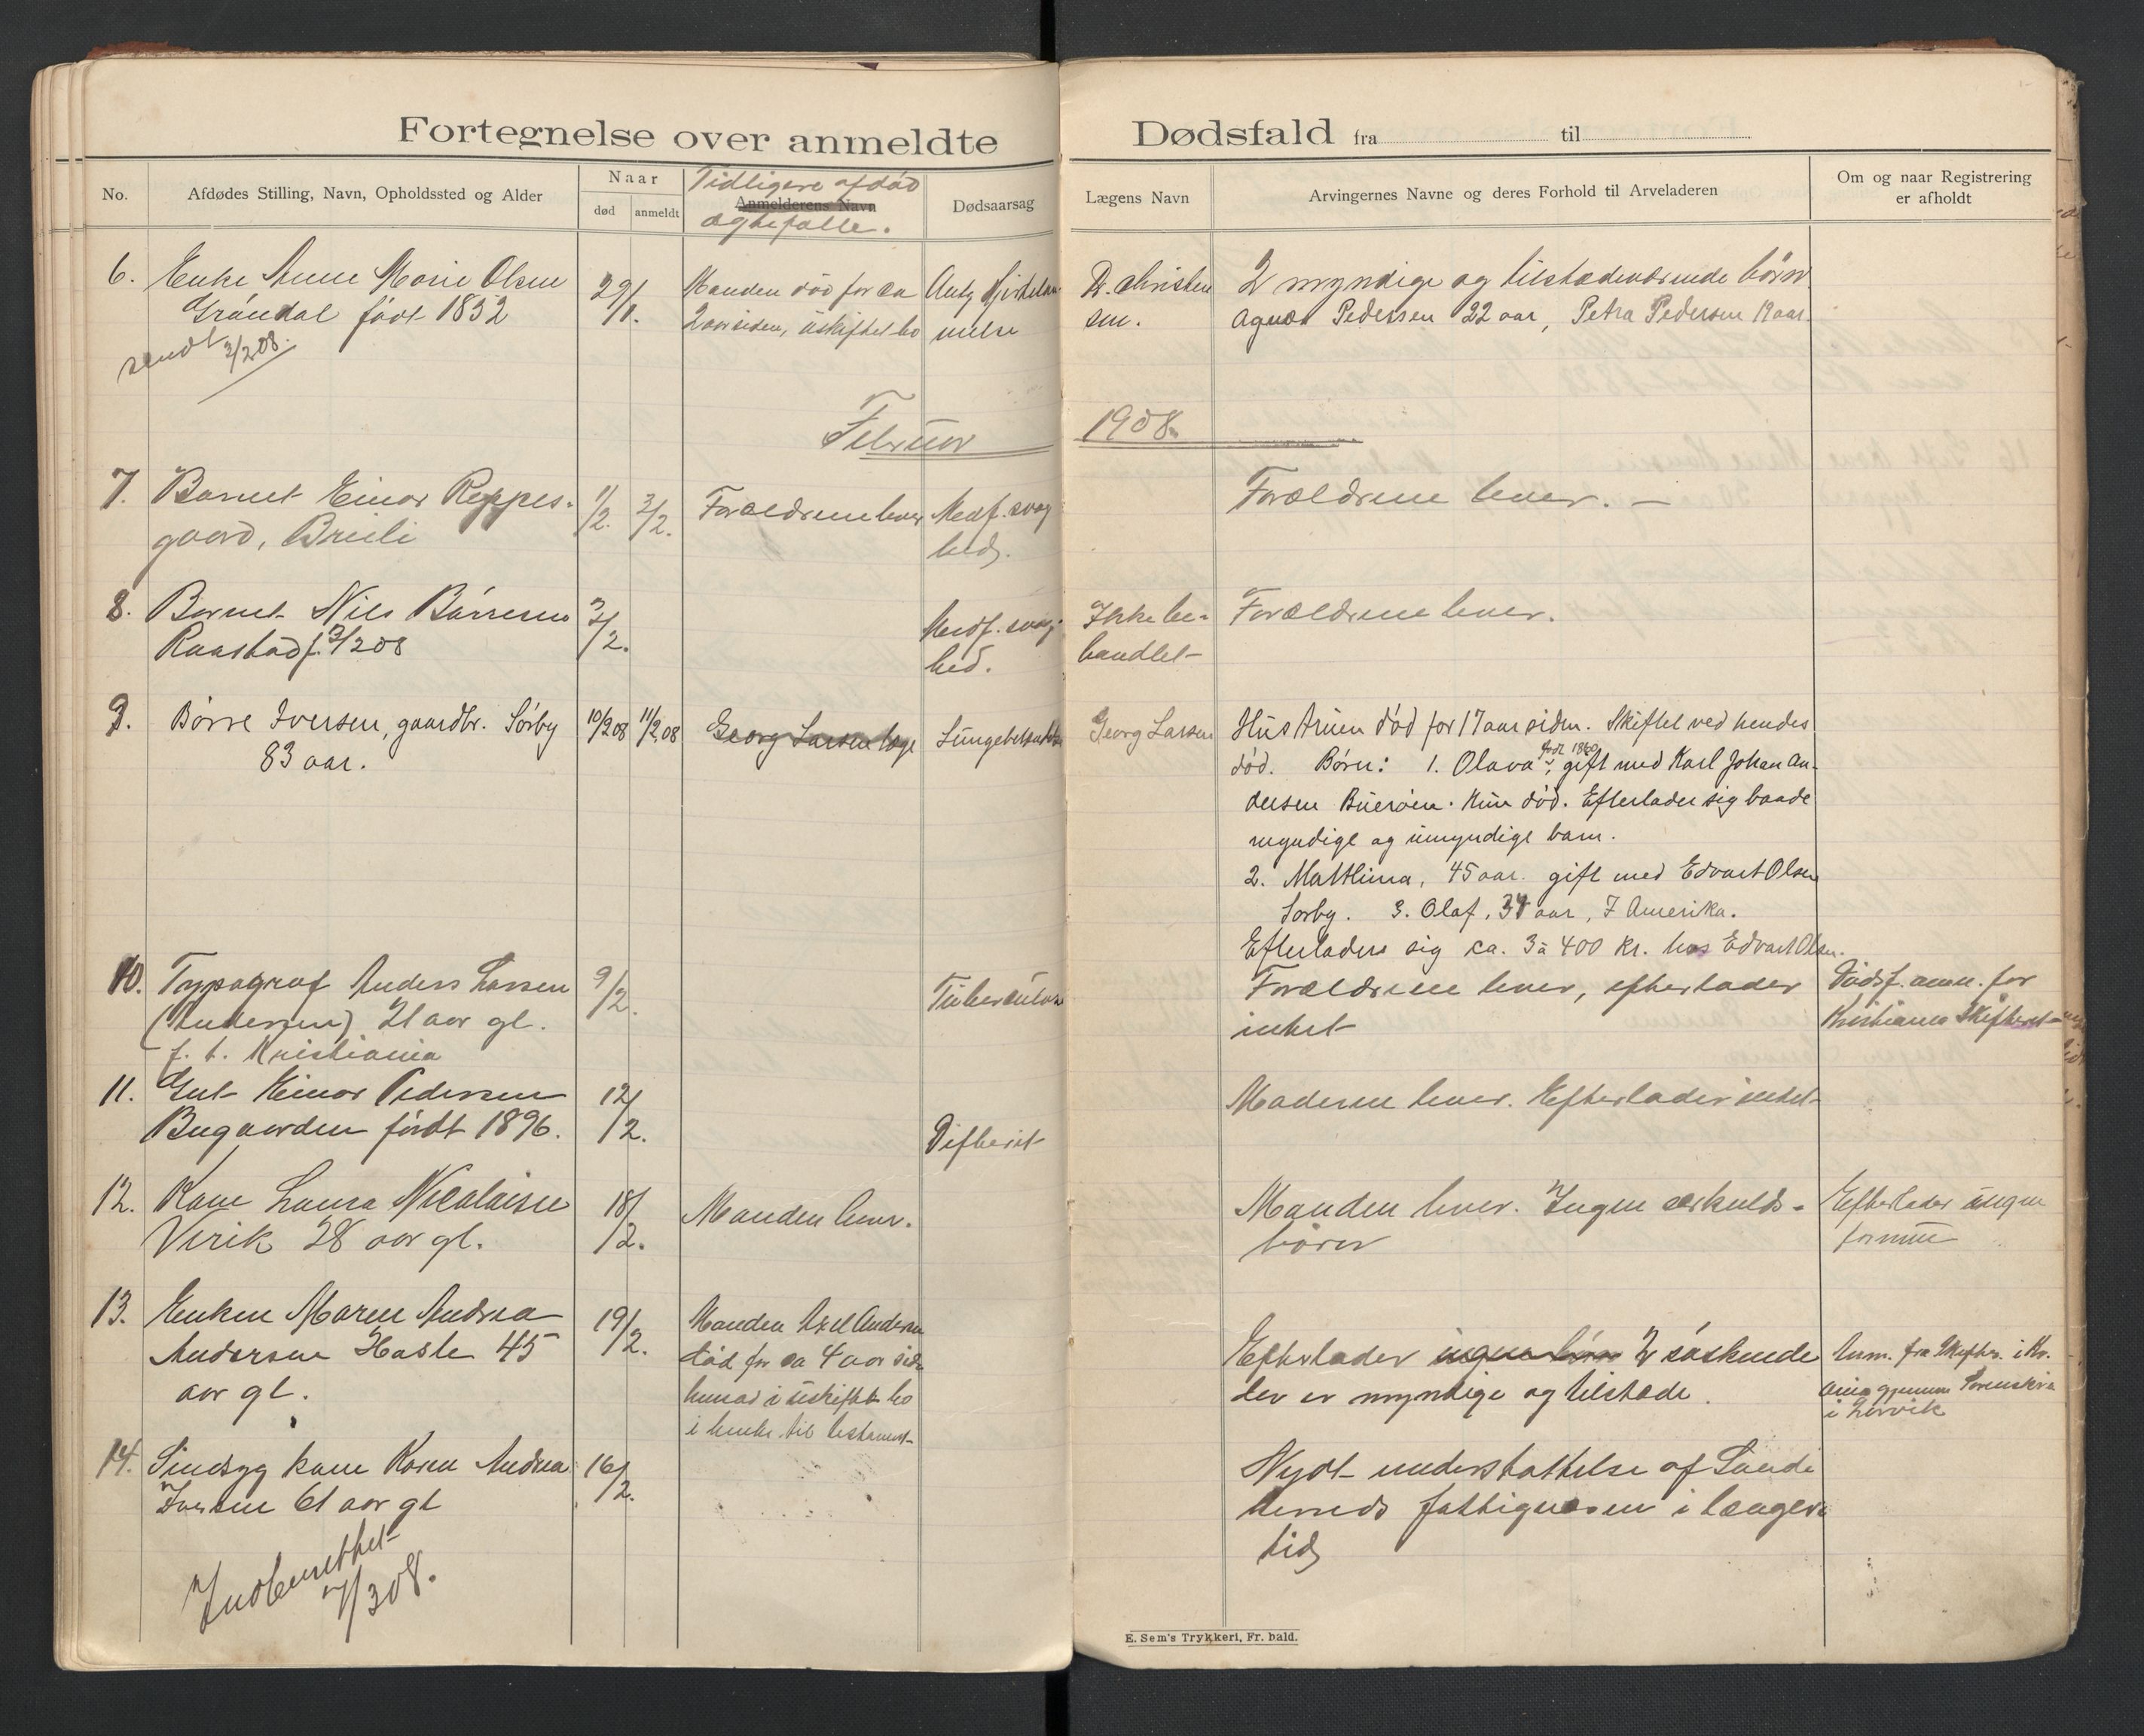 Fortegnelse over anmeldte Dødsfald fra til
No. Afdødes Stilling, Navn, Opholdssted og Alder Naar Tidligere afdød
død anmeldt Anmelderens Navn Dødsaarsag Lægens Navn Arvingernes Navne og deres Forhold til Arveladeren Om og naar Registrering
ægtefælle. er afholdt
6. Enke Anne Marie Olsen 29/1. Manden død for ca Dr. Christen 2 myndige og tilstedeværende børn
Grøndal født 1832 2 aar siden, uskiftet bo sen. Agnes Pedersen 22 aar, Petra Pedersen 19 aar.
sendt 3/2 08.
Februar 1908.
7. Barnet Einar Reppes- 1/2. 3/2. Forældrene lever Medf. svag Forældrene lever. —
gaard, Breili hed.
8. Barnet Nils Børresen 3/2. Medf. svag- Ikke be- Forældrene lever.
Raastad f. 3/2 08 hed. handlet
9. Børre Iversen, gaardbr. Sørby 10/2 08 11/2 08 Georg Larsen læge Lungebetændelse Georg Larsen Hustruen død for 17 aar siden. Skiftet ved hendes
83 aar. død. Børn: 1. Olava, født 1860 gift med Karl Johan An-
dersen Buerøen. Hun død. Efterlader sig baade
myndige og umyndige barn.
2. Matthina, 45 aar. gift med Edvart Olsen
Sørby. 3. Olaf, 34 aar, I Amerika.
Efterladers sig ca. 3 à 400 kr. hos Edvart Olsen.
10. Typograf Anders Larsen 9/2. Tuberculose Forældrene lever, efterlader Dødsf. anm. for
(Andersen) 21 aar gl. intet Kristiania Skifteret
f. t. Kristiania
11. Gut Einar Pedersen 12/2. Moderen lever. Efterlader intet
Bugaarden født 1896. Difterit
12. Kone Laura Nicolaisen 18/2. Manden lever. Manden lever. Ingen særkulds- Efterlader ingen
Virik 28 aar gl. børn formue
13. Enken Maren Andrea 19/2. Manden Axel Andersen Efterlader ingen børn 2 søskende Anm. fra Skifter. i Kr.
Andersen Hasle 45 død for ca 4 aar siden der er myndige og tilstede. ania gjennem Sorenskriv
aar gl. hensad i uskiftet bo i Larvik
i henhold til testament
14. Sindsyg kone Karen Andrea 16/2. Nydt understøttelse af Sande
Iversen 61 aar gl herreds fattigvæsen i længere
tid
Indberettet
7/3 08.
E. Sem's Trykkeri, Fr. hald.